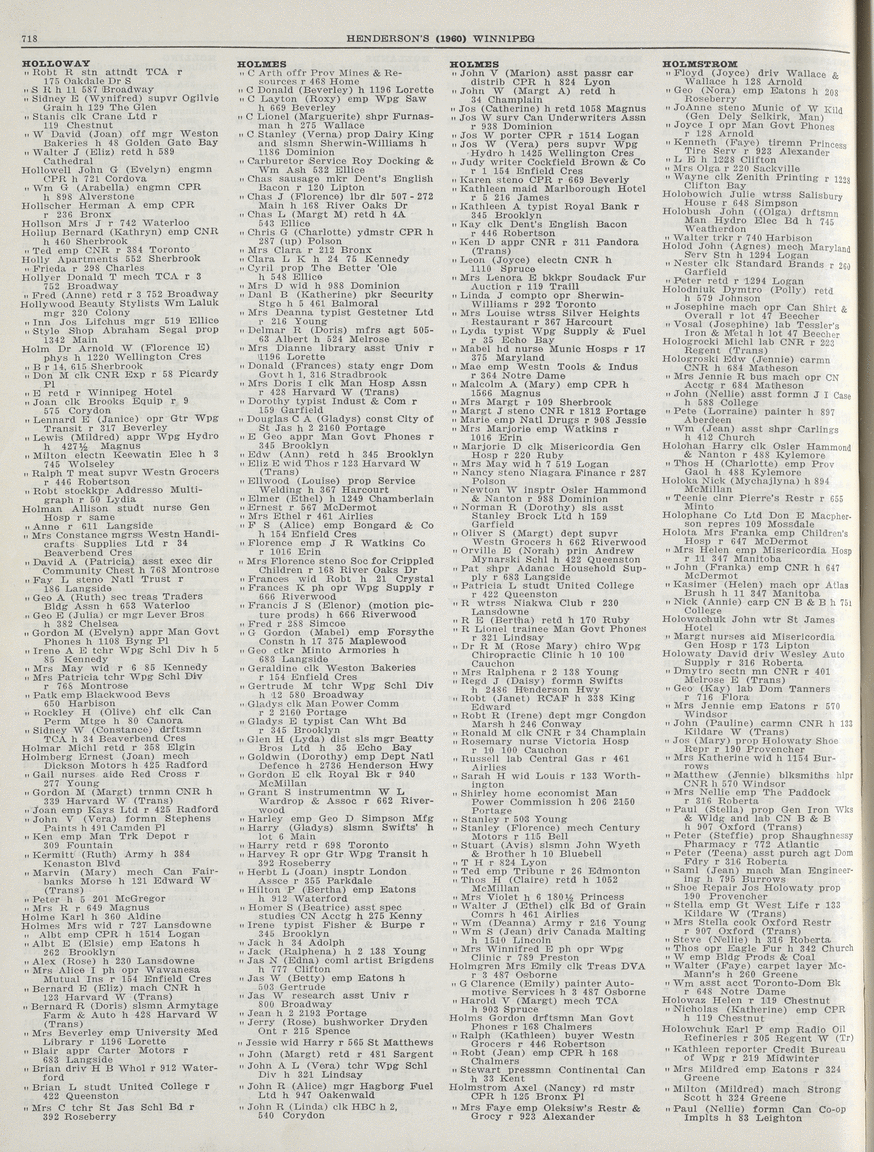 718
HENDERSON'S (1960) WINNIPEG
HOLLOWAY
" Robt R stn attndt TCA r
175 Oakdale Dr S
" S R h 11 587 Broadway
" Sidney E (Wynifred) supvr Ogilvie
Grain h 129 The Glen
" Stanis clk Crane Ltd r
119 Chestnut
" W David (Joan) off mgr Weston
Bakeries h 48 Golden Gate Bay
" Walter J (Eliz) retd h 589
Cathedral
Hollowell John G (Evelyn) engmn
CPR h 721 Cordova
" Wm G (Arabella) engmn CPR
h 898 Alverstone
Hollscher Herman A emp CPR
r 236 Bronx
Hollson Mrs J r 742 Waterloo
Hollup Bernard (Kathryn) emp CNR
h 460 Sherbrook
" Ted emp CNR r 384 Toronto
Holly Apartments 552 Sherbrook
" Frieda r 298 Charles
Hollyer Donald T mech TCA r 3
752 Broadway
" Fred (Anne) retd r 3 752 Broadway
Hollywood Beauty Stylists Wm Laluk
mgr 320 Colony
" Inn Jos Lifchus mgr 519 Ellice
" Style Shop Abraham Segal prop
1342 Main
Holm Dr Arnold W (Florence E)
phys h 1220 Wellington Cres
" B r 14, 615 Sherbrook
" Don M clk CNR Exp r 58 Picardy
Pl
" E retd r Winnipeg Hotel
" Joan clk Brooks Equip r 9
575 Corydon
" Lennard E (Janice) opr Gtr Wpg
Transit r 317 Beverley
" Lewis (Mildred) appr Wpg Hydro
h 427½ Magnus
" Milton electn Keewatin Elec h 3
745 Wolseley
" Ralph T meat supvr Westn Grocers
r 446 Robertson
" Robt stockkpr Addresso Multi-
graph r 50 Lydia
Holman Allison studt nurse Gen
Hosp r same
" Anne r 611 Langside
" Mrs Constance mgrss Westn Handi-
crafts Supplies Ltd r 34
Beaverbend Cres
" David A (Patricia) asst exec dir
Community Chest h 768 Montrose
" Fay L steno Natl Trust r
186 Langside
" Geo A (Ruth) sec treas Traders
Bldg Assn h 653 Waterloo
" Geo E (Julia) cr mgr Lever Bros
h 382 Chelsea
" Gordon M (Evelyn) appr Man Govt
Phones h 1108 Byng Pl
" Irene A E tchr Wpg Schl Div h 5
85 Kennedy
" Mrs May wid r 6 85 Kennedy
" Mrs Patricia tchr Wpg Schl Div
r 768 Montrose
" Patk emp Blackwood Bevs
650 Harbison
" Rockley H (Olive) chf clk Can
Perm Mtge h 80 Canora
" Sidney W (Constance) drftsmn
TCA h 34 Beaverbend Cres
Holmar Michl retd r 358 Elgin
Holmberg Ernest (Joan) mech
Dickson Motors h 425 Radford
" Gail nurses aide Red Cross r
277 Young
" Gordon M (Margt) trnmn CNR h
339 Harvard W (Trans)
" Joan emp Kays Ltd r 425 Radford
" John V (Vera) formn Stephens
Paints h 491 Camden Pl
" Ken emp Man Trk Depot r
309 Fountain
" Kermitt (Ruth) Army h 384
Kenaston Blvd
" Marvin (Mary) mech Can Fair-
banks Morse h 121 Edward W
(Trans)
" Peter h 5 201 McGregor
" Mrs R r 649 Magnus
Holme Karl h 360 Aldine
Holmes Mrs wid r 727 Lansdowne
" Albt emp CPR h 1514 Logan
" Albt E (Elsie) emp Eatons h
262 Brooklyn
" Alex (Rose) h 230 Lansdowne
" Mrs Alice I ph opr Wawanesa
Mutual Ins r 154 Enfield Cres
" Bernard E (Eliz) mach CNR h
123 Harvard W (Trans)
" Bernard R (Doris) slsmn Armytage
Farm & Auto h 428 Harvard W
(Trans)
" Mrs Beverley emp University Med
Library r 1196 Lorette
" Blair appr Carter Motors r
683 Langside
" Brian driv H B Whol r 912 Water-
ford
" Brian L studt United College r
422 Queenston
" Mrs C tchr St Jas Schl Bd r
392 Roseberry
HOLMES
" C Arth offr Prov Mines & Re-
sources r 468 Home
" C Donald (Beverley) h 1196 Lorette
" C Layton (Roxy) emp Wpg Saw
h 669 Beverley
" C Lionel (Marguerite) shpr Furnas-
man h 275 Wallace
" C Stanley (Verna) prop Dairy King
and slsmn Sherwin-Williams h
1186 Dominion
" Carburetor Service Roy Docking &
Wm Ash 532 Ellice
" Chas sausage mkr Dent's English
Bacon r 120 Lipton
" Chas J (Florence) lbr dlr 507 - 272
Main h 168 River Oaks Dr
" Chas L (Margt M) retd h 4A
543 Ellice
" Chris G (Charlotte) ydmstr CPR h
287 (up) Polson
" Mrs Clara r 212 Bronx
" Clara L K h 24 75 Kennedy
" Cyril prop The Better 'Ole
h 548 Ellice
" Mrs D wid h 988 Dominion
" Danl B (Katherine) pkr Security
Stge h 5 461 Balmoral
" Mrs Deanna typist Gestetner Ltd
r 216 Young
" Delmar R (Doris) mfrs agt 505-
63 Albert h 524 Melrose
" Mrs Dianne library asst Univ r
1196 Lorette
" Donald (Frances) staty engr Dom
Govt h 1, 316 Stradbrook
" Mrs Doris I clk Man Hosp Assn
r 428 Harvard W (Trans)
" Dorothy typist Indust & Com r
159 Garfield
" Douglas C A (Gladys) const City of
St Jas h 2 2160 Portage
" E Geo appr Man Govt Phones r
345 Brooklyn
" Edw (Ann) retd h 345 Brooklyn
" Eliz E wid Thos r 123 Harvard W
(Trans)
" Ellwood (Louise) prop Service
Welding h 367 Harcourt
" Elmer (Ethel) h 1249 Chamberlain
" Ernest r 567 McDermot
" Mrs Ethel r 461 Airlies
" F S (Alice) emp Bongard & Co
h 154 Enfield Cres
" Florence emp J R Watkins Co
r 1016 Erin
" Mrs Florence steno Soc for Crippled
Children r 168 River Oaks Dr
" Frances wid Robt h 21 Crystal
" Frances K ph opr Wpg Supply r
666 Riverwood
" Francis J S (Elenor) (motion pic-
ture prods) h 666 Riverwood
" Fred r 288 Simcoe
" G Gordon (Mabel) emp Forsythe
Constn h 17 375 Maplewood
" Geo ctkr Minto Armories h
683 Langside
" Geraldine clk Weston Bakeries
r 154 Enfield Cres
" Gertrude M tchr Wpg Schl Div
h 12 580 Broadway
" Gladys clk Man Power Comm
r 2 2160 Portage
" Gladys E typist Can Wht Bd
r 345 Brooklyn
" Glen H (Lyda) dist sls mgr Beatty
Bros Ltd h 35 Echo Bay
" Goldwin (Dorothy) emp Dept Natl
Defence h 2736 Henderson Hwy
" Gordon E clk Royal Bk r 940
McMillan
" Grant S instrumentmn W L
Wardrop & Assoc r 662 River-
wood
" Harley emp Geo D Simpson Mfg
" Harry (Gladys) slsmn Swifts' h
lot 6 Main
" Harry retd r 698 Toronto
" Harvey R opr Gtr Wpg Transit h
392 Roseberry
" Herbt L (Joan) insptr London
Assce r 355 Parkdale
" Hilton P (Bertha) emp Eatons
h 912 Waterford
" Homer S (Beatrice) asst spec
studies CN Acctg h 275 Kenny
" Irene typist Fisher & Burpe r
345 Brooklyn
" Jack h 34 Adolph
" Jack (Ralphena) h 2 138 Young
" Jas N (Edna) coml artist Brigdens
h 777 Clifton
" Jas W (Betty) emp Eatons h
503 Gertrude
" Jas W research asst Univ r
800 Broadway
" Jean h 2 2193 Portage
" Jerry (Rose) bushworker Dryden
Ont r 215 Spence
" Jessie wid Harry r 565 St Matthews
" John (Margt) retd r 481 Sargent
" John A L (Vera) tchr Wpg Schl
Div h 321 Lindsay
" John R (Alice) mgr Hagborg Fuel
Ltd h 947 Oakenwald
" John R (Linda) clk HBC h 2,
540 Corydon
HOLMES
" John V (Marion) asst passr car
distrib CPR h 824 Lyon
" John W (Margt A) retd h
34 Champlain
" Jos (Catherine) h retd 1058 Magnus
" Jos W surv Can Underwriters Assn
r 938 Dominion
" Jos W porter CPR r 1514 Logan
" Jos W (Vera) pers supvr Wpg
Hydro h 1425 Wellington Cres
" Judy writer Cockfield Brown & Co
r 1 154 Enfield Cres
" Karen steno CPR r 669 Beverly
" Kathleen maid Marlborough Hotel
r 5 216 James
" Kathleen A typist Royal Bank r
345 Brooklyn
" Kay clk Dent's English Bacon
r 446 Robertson
" Ken D appr CNR r 311 Pandora
(Trans)
" Leon (Joyce) electn CNR h
1110 Spruce
" Mrs Lenora E bkkpr Soudack Fur
Auction r 119 Traill
" Linda J compto opr Sherwin-
Williams r 292 Toronto
" Mrs Louise wtrss Silver Heights
Restaurant r 367 Harcourt
" Lyda typist Wpg Supply & Fuel
r 35 Echo Bay
" Mabel hd nurse Munic Hosps r 17
375 Maryland
" Mae emp Westn Tools & Indus
r 364 Notre Dame
" Malcolm A (Mary) emp CPR h
1566 Magnus
" Mrs Margt r 109 Sherbrook
" Margt J steno CNR r 1812 Portage
" Marie emp Natl Drugs r 908 Jessie
" Mrs Marjorie emp Watkins r
1016 Erin
" Marjorie D clk Misericordia Gen
Hosp r 220 Ruby
" Mrs May wid h 7 519 Logan
" Nancy steno Niagara Finance r 287
Polson
" Newton W insptr Osler Hammond
& Nanton r 988 Dominion
" Norman R (Dorothy) sls asst
Stanley Brock Ltd h 159
Garfield
" Oliver S (Margt) dept supvr
Westn Grocers h 662 Riverwood
" Orville E (Norah) prin Andrew
Mynarski Schl h 422 Queenston
" Pat shpr Adanac Household Sup-
ply r 683 Langside
" Patricia L studt United College
r 422 Queenston
" R wtrss Niakwa Club r 230
Lansdowne
" R E (Bertha) retd h 170 Ruby
" R Lionel trainee Man Govt Phones
r 321 Lindsay
" Dr R M (Rose Mary) chiro Wpg
Chiropractic Clinic h 10 100
Cauchon
" Mrs Ralphena r 2 138 Young
" Regd J (Daisy) formn Swifts
h 2486 Henderson Hwy
" Robt (Janet) RCAF h 338 King
Edward
" Robt R (Irene) dept mgr Congdon
Marsh h 246 Conway
" Ronald M clk CNR r 34 Champlain
" Rosemary nurse Victoria Hosp
r 10 100 Cauchon
" Russell lab Central Gas r 461
Airlies
" Sarah H wid Louis r 133 Worth-
ington
" Shirley home economist Man
Power Commission h 206 2150
Portage
" Stanley r 503 Young
" Stanley (Florence) mech Century
Motors r 115 Bell
" Stuart (Avis) slsmn John Wyeth
& Brother h 10 Bluebell
" T H r 824 Lyon
" Ted emp Tribune r 26 Edmonton
" Thos H (Claire) retd h 1052
McMillan
" Mrs Violet h 6 180½ Princess
" Walter J (Ethel) clk Bd of Grain
Comrs h 461 Airlies
" Wm (Deanna) Army r 216 Young
" Wm S (Jean) driv Canada Malting
h 1510 Lincoln
" Mrs Winnifred E ph opr Wpg
Clinic r 789 Preston
Holmgren Mrs Emily clk Treas DVA
r 3 487 Osborne
" G Clarence (Emily) painter Auto-
motive Services h 3 487 Osborne
" Harold V (Margt) mech TCA
h 903 Spruce
Holms Gordon drftsmn Man Govt
Phones r 168 Chalmers
" Ralph (Kathleen) buyer Westn
Grocers r 446 Robertson
" Robt (Jean) emp CPR h 168
Chalmers
" Stewart pressmn Continental Can
h 33 Kent
Holmstrom Axel (Nancy) rd mstr
CPR h 125 Bronx Pl
" Mrs Faye emp Oleksiw's Restr &
Grocy r 923 Alexander
HOLMSTROM
" Floyd (Joyce) driv Wallace &
Wallace h 128 Arnold
" Geo (Nora) emp Eatons h 208
Roseberry
" JoAnne steno Munic of W Kild
(Gen Dely Selkirk, Man)
" Joyce I opr Man Govt Phones
r 128 Arnold
" Kenneth (Faye) tiremn Princess
Tire Serv r 923 Alexander
" L E h 1228 Clifton
" Mrs Olga r 220 Sackville
" Wayne clk Zenith Printing r 1228
Clifton Bay
Holobowich Julie wtrss Salisbury
House r 648 Simpson
Holobush John ((Olga) drftsmn
Man Hydro Elec Bd h 745
Weatherdon
" Walter trkr r 740 Harbison
Holod John (Agnes) mech Maryland
Serv Stn h 1294 Logan
" Nester clk Standard Brands r 260
Garfield
" Peter retd r 1294 Logan
Holodniuk Dymtro (Polly) retd
h 579 Johnson
" Josephine mach opr Can Shirt &
Overall r lot 47 Beecher
" Vosal (Josephine) lab Tessler's
Iron & Metal h lot 47 Beecher
Hologrocki Michl lab CNR r 223
Regent (Trans)
Hologroski Edw (Jennie) carmn
CNR h 684 Matheson
" Mrs Jennie R bus mach opr CN
Acctg r 684 Matheson
" John (Nellie) asst formn J I Case
h 588 College
" Pete (Lorraine) painter h 897
Aberdeen
" Wm (Jean) asst shpr Carlings
h 412 Church
Holohan Harry clk Osler Hammond
& Nanton r 488 Kylemore
" Thos H (Charlotte) emp Prov
Gaol h 488 Kylemore
Holoka Nick (Mychajlyna) h 894
McMillan
" Teenie clnr Pierre's Restr r 655
Minto
Holophane Co Ltd Don E Macpher-
son repres 109 Mossdale
Holota Mrs Franka emp Children's
Hosp r 647 McDermot
" Mrs Helen emp Misericordia Hosp
r 11 347 Manitoba
" John (Franka) emp CNR h 647
McDermot
" Kasimer (Helen) mach opr Atlas
Brush h 11 347 Manitoba
" Nick (Annie) carp CN B & B h 751
College
Holowachuk John wtr St James
Hotel
" Margt nurses aid Misericordia
Gen Hosp r 173 Lipton
Holowaty David driv Wesley Auto
Supply r 316 Roberta
" Dmytro sectn mn CNR r 401
Melrose E (Trans)
" Geo (Kay) lab Dom Tanners
r 716 Flora
" Mrs Jennie emp Eatons r 570
Windsor
" John (Pauline) carmn CNR h 133
Kildare W (Trans)
" Jos (Mary) prop Holowaty Shoe
Repr r 190 Provencher
" Mrs Katherine wid h 1154 Bur-
rows
" Matthew (Jennie) blksmiths hlpr
CNR h 570 Windsor
" Mrs Nellie emp The Paddock
r 316 Roberta
" Paul (Stella) prop Gen Iron Wks
& Wldg and lab CN B & B
h 907 Oxford (Trans)
" Peter (Steffie) prop Shaughnessy
Pharmacy r 772 Atlantic
" Peter (Teena) asst purch agt Dom
Fdry r 316 Roberta
" Saml (Jean) mach Man Engineer-
ing h 795 Burrows
" Shoe Repair Jos Holowaty prop
190 Provencher
" Stella emp Gt West Life r 133
Kildare W (Trans)
" Mrs Stella cook Oxford Restr
r 907 Oxford (Trans)
" Steve (Nellie) h 316 Roberta
" Thos opr Eagle Fur h 342 Church
" W emp Bldg Prods & Coal
" Walter (Faye) carpet layer Mc-
Mann's h 260 Greene
" Wm asst acct Toronto-Dom Bk
r 648 Notre Dame
Holowaz Helen r 119 Chestnut
" Nicholas (Katherine) emp CPR
h 119 Chestnut
Holowchuk Earl P emp Radio Oil
Refineries r 305 Regent W (Tr)
" Kathleen reporter Credit Bureau
of Wpg r 219 Midwinter
" Mrs Mildred emp Eatons r 324
Greene
" Milton (Mildred) mach Strong
Scott h 324 Greene
" Paul (Nellie) formn Can Co-op
Implts h 83 Leighton